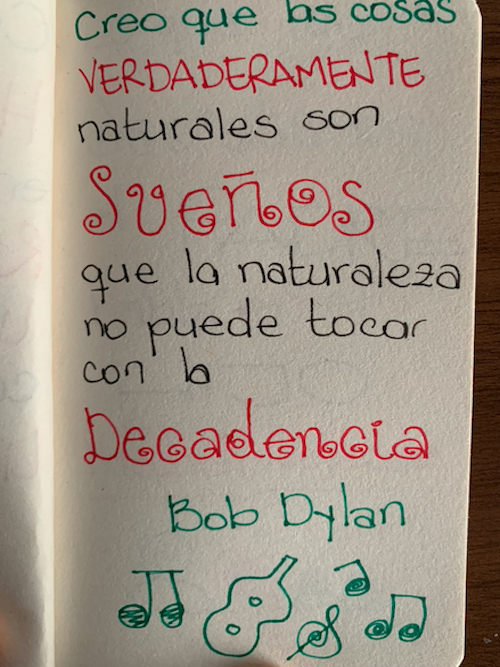 Creo que las cosas
VERDADERAMENTE
naturales son
Sueños
que la naturaleza
no puede tocar
con la
Decadencia
Bob Dylan